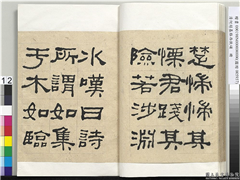 楚惴惴其
慄君踐其
險若涉淵
冰嘆曰詩
所謂如集
于木如臨
12